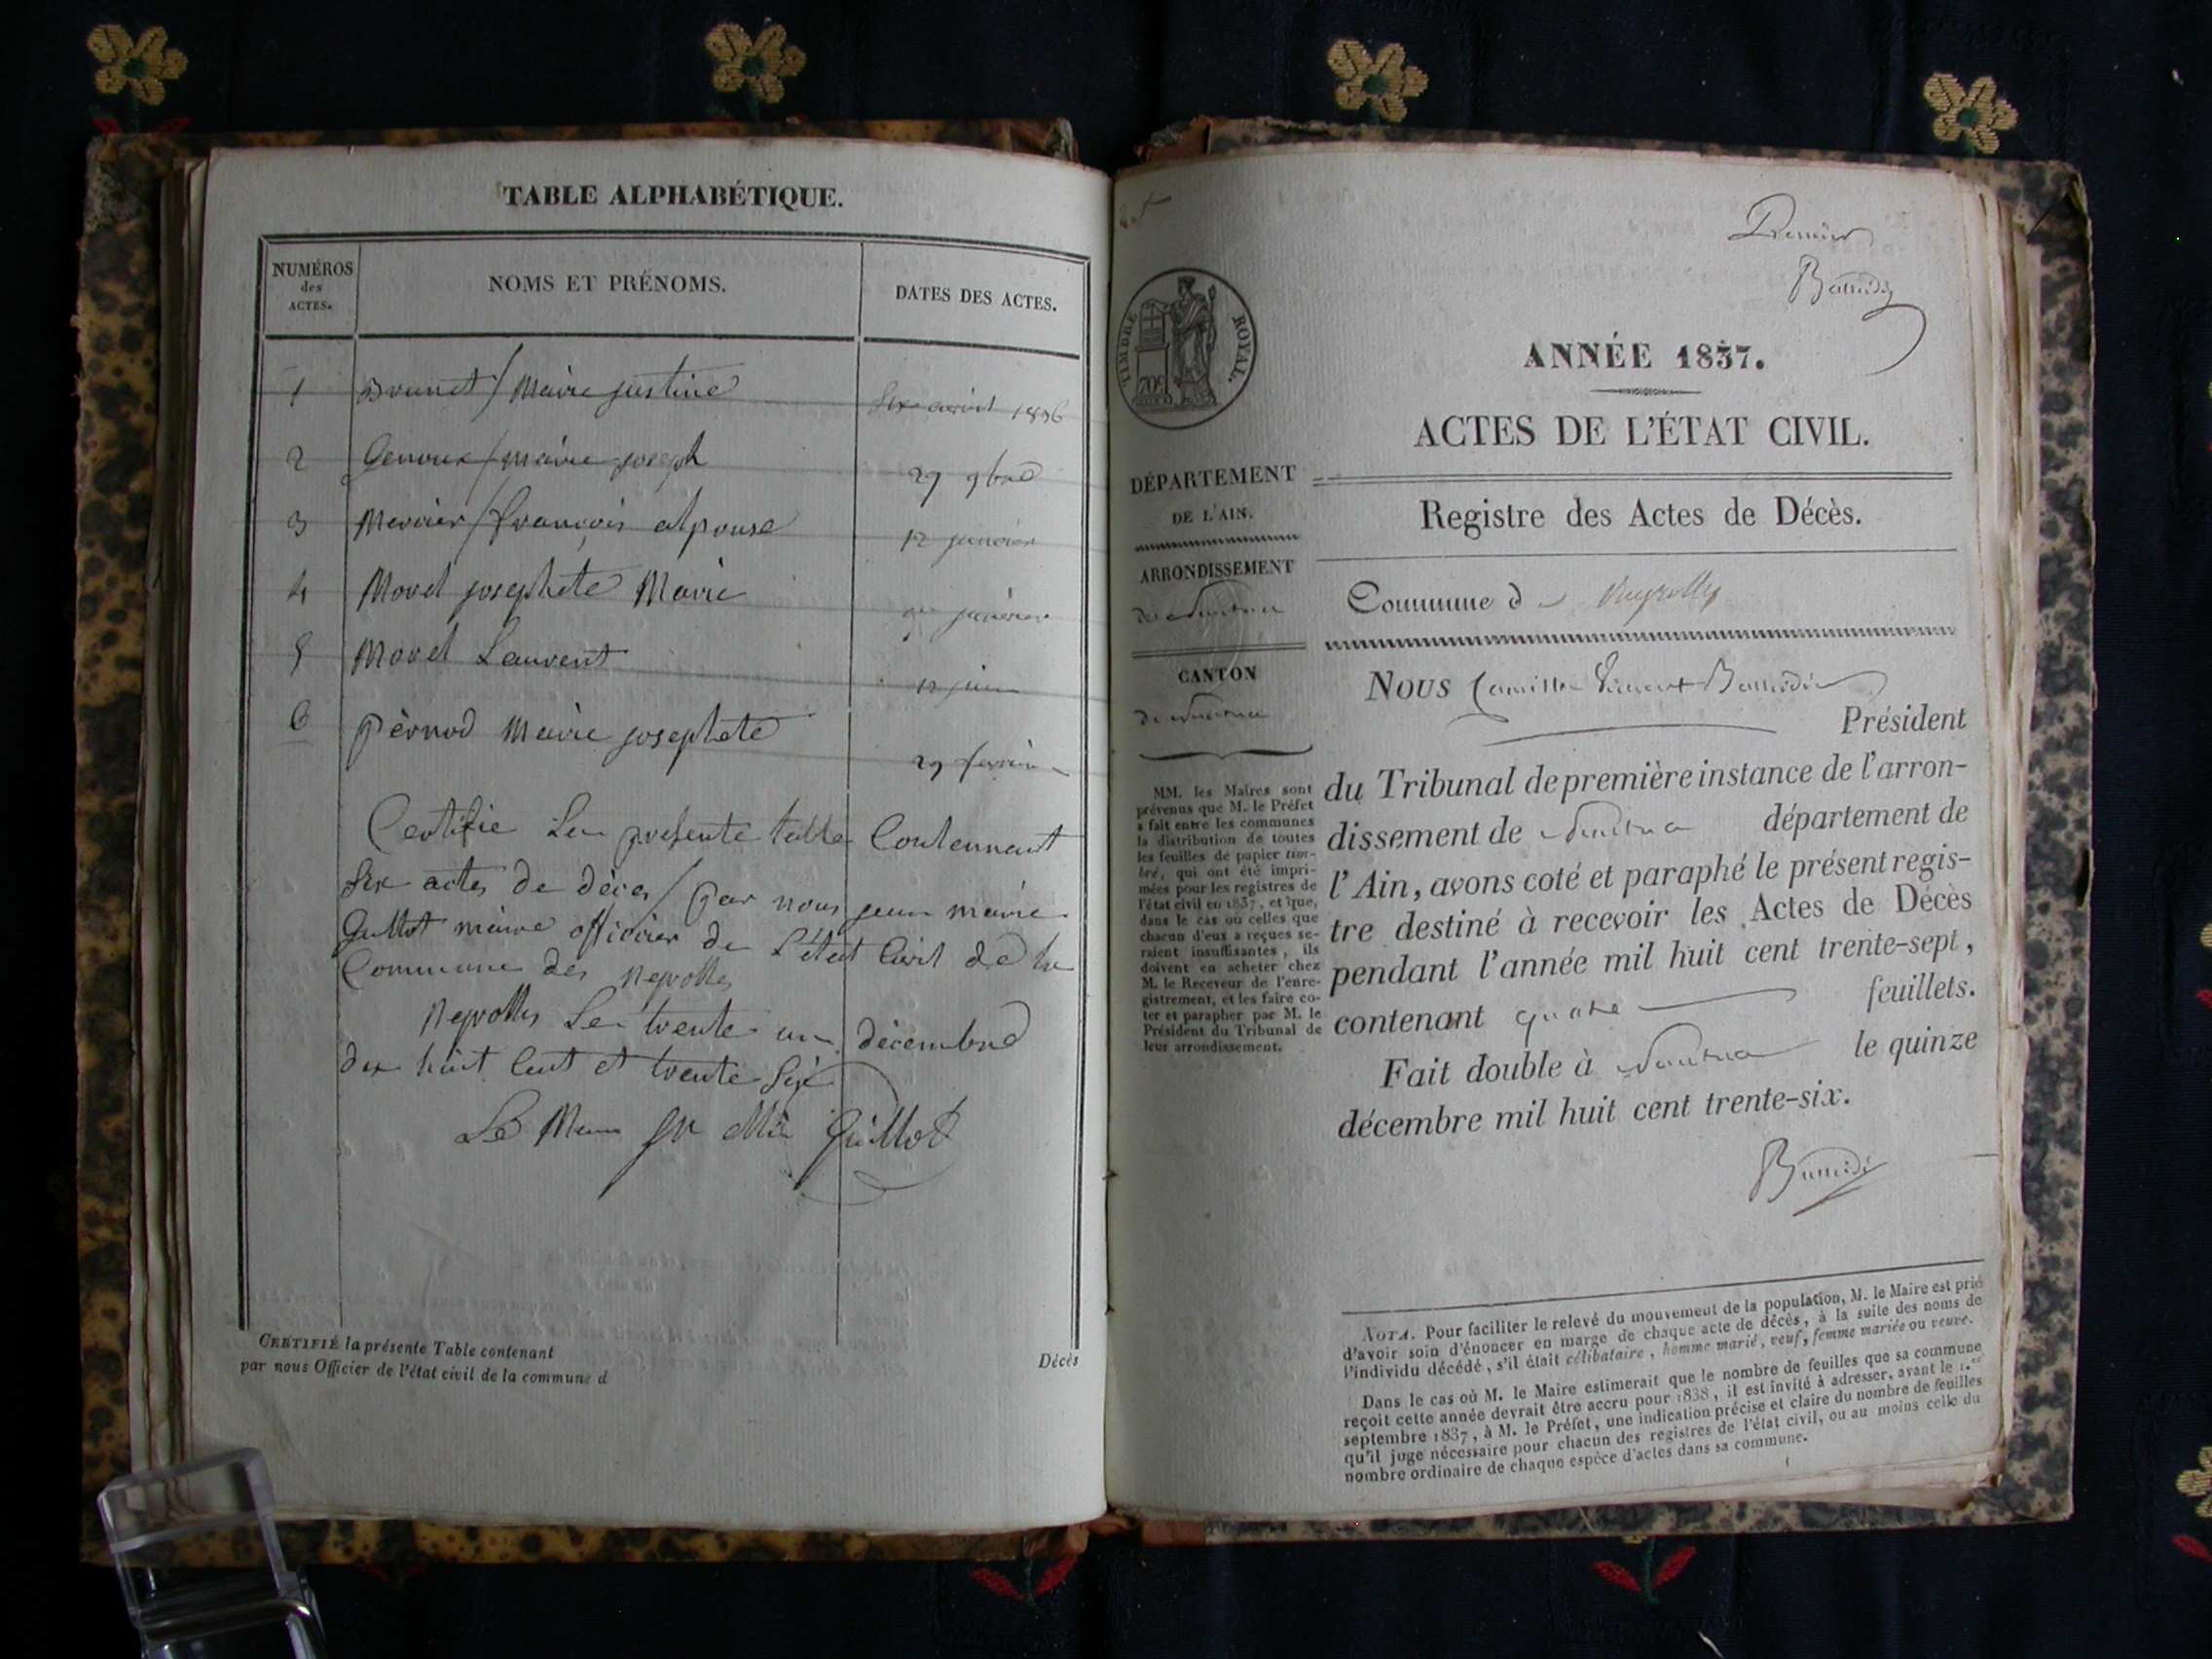 TABLE ALPHABÉTIQUE.
NUMÉROS
des
ACTES.
NOMS ET PRÉNOMS.
DATES DES ACTES.
1 Brunet / Marie justine Six avril 1836
2 Genoux / marie joseph 29 9bre
3 Mercier / françois alponse 12 janvier
4 Morel josephete Marie janvier
5 Morel Laurent 12 juin
6 Pernod Marie josephete 29 fevrier
Certifie La presente table Contennant
Six actes de décès / par nous jean marie
Guillot maire officier de L'état Civil de la
Commune des neyrolles
Neyrolles Le trente un décembre
dix huit Cent et trente Six
Le Maire jn Mie Guillot
CERTIFIÉ la présente Table contenant
par nous Officier de l'état civil de la commune d
Décès
Premier
TIMBRE ROYAL.
70c
ANNÉE 1837.
ACTES DE L'ÉTAT CIVIL.
DÉPARTEMENT
DE L'AIN.
Registre des Actes de Décès.
ARRONDISSEMENT
de Nantua
Commune d Neyrolles
CANTON
de Nantua
Nous Camille Vincent
Président
du Tribunal de première instance de l'arron-
dissement de Nantua département de
l'Ain, avons coté et paraphé le présent regis-
tre destiné à recevoir les Actes de Décès
pendant l'année mil huit cent trente-sept,
contenant quatre feuillets.
Fait double à Nantua le quinze
décembre mil huit cent trente-six.
MM. les Maires sont
prévenus que M. le Préfet
a fait entre les communes
la distribution de toutes
les feuilles de papier tim-
bré, qui ont été impri-
mées pour les registres de
l'état civil en 1837, et que,
dans le cas où celles que
chacun d'eux a reçues se-
raient insuffisantes, ils
doivent en acheter chez
M. le Receveur de l'enre-
gistrement, et les faire co-
ter et parapher par M. le
Président du Tribunal de
leur arrondissement.
NOTA. Pour faciliter le relevé du mouvement de la population, M. le Maire est prié
d'avoir soin d'énoncer en marge de chaque acte de décès, à la suite des noms de
l'individu décédé, s'il était célibataire, homme marié, veuf, femme mariée ou veuve.
Dans le cas où M. le Maire estimerait que le nombre de feuilles que sa commune
reçoit cette année devrait être accru pour 1838, il est invité à adresser, avant le 1.er
septembre 1837, à M. le Préfet, une indication précise et claire du nombre de feuilles
qu'il juge nécessaire pour chacun des registres de l'état civil, ou au moins celle du
nombre ordinaire de chaque espèce d'actes dans sa commune.